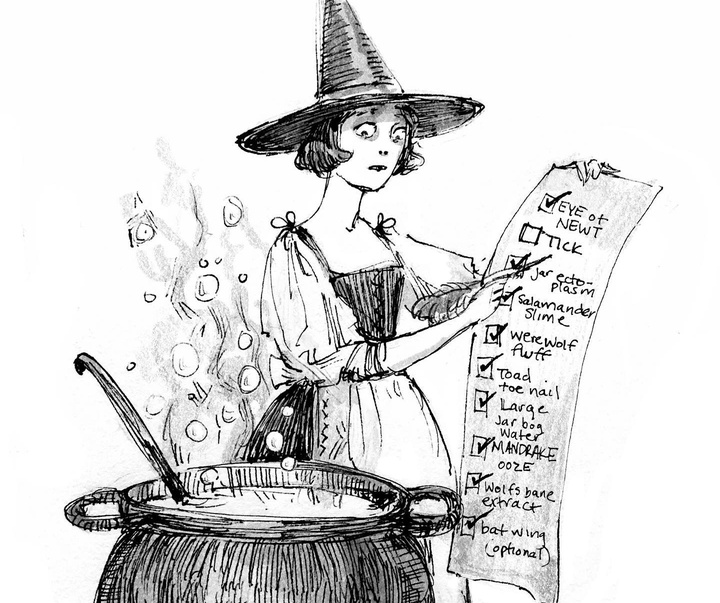 EYE of
NEWT
TICK
Jar ecto-
plasm
Salamander
Slime
Werewolf
fluff
Toad
toe nail
Large
Jar bog
Water
MANDRAKE
OOZE
Wolfs bane
extract
bat wing
(optional)